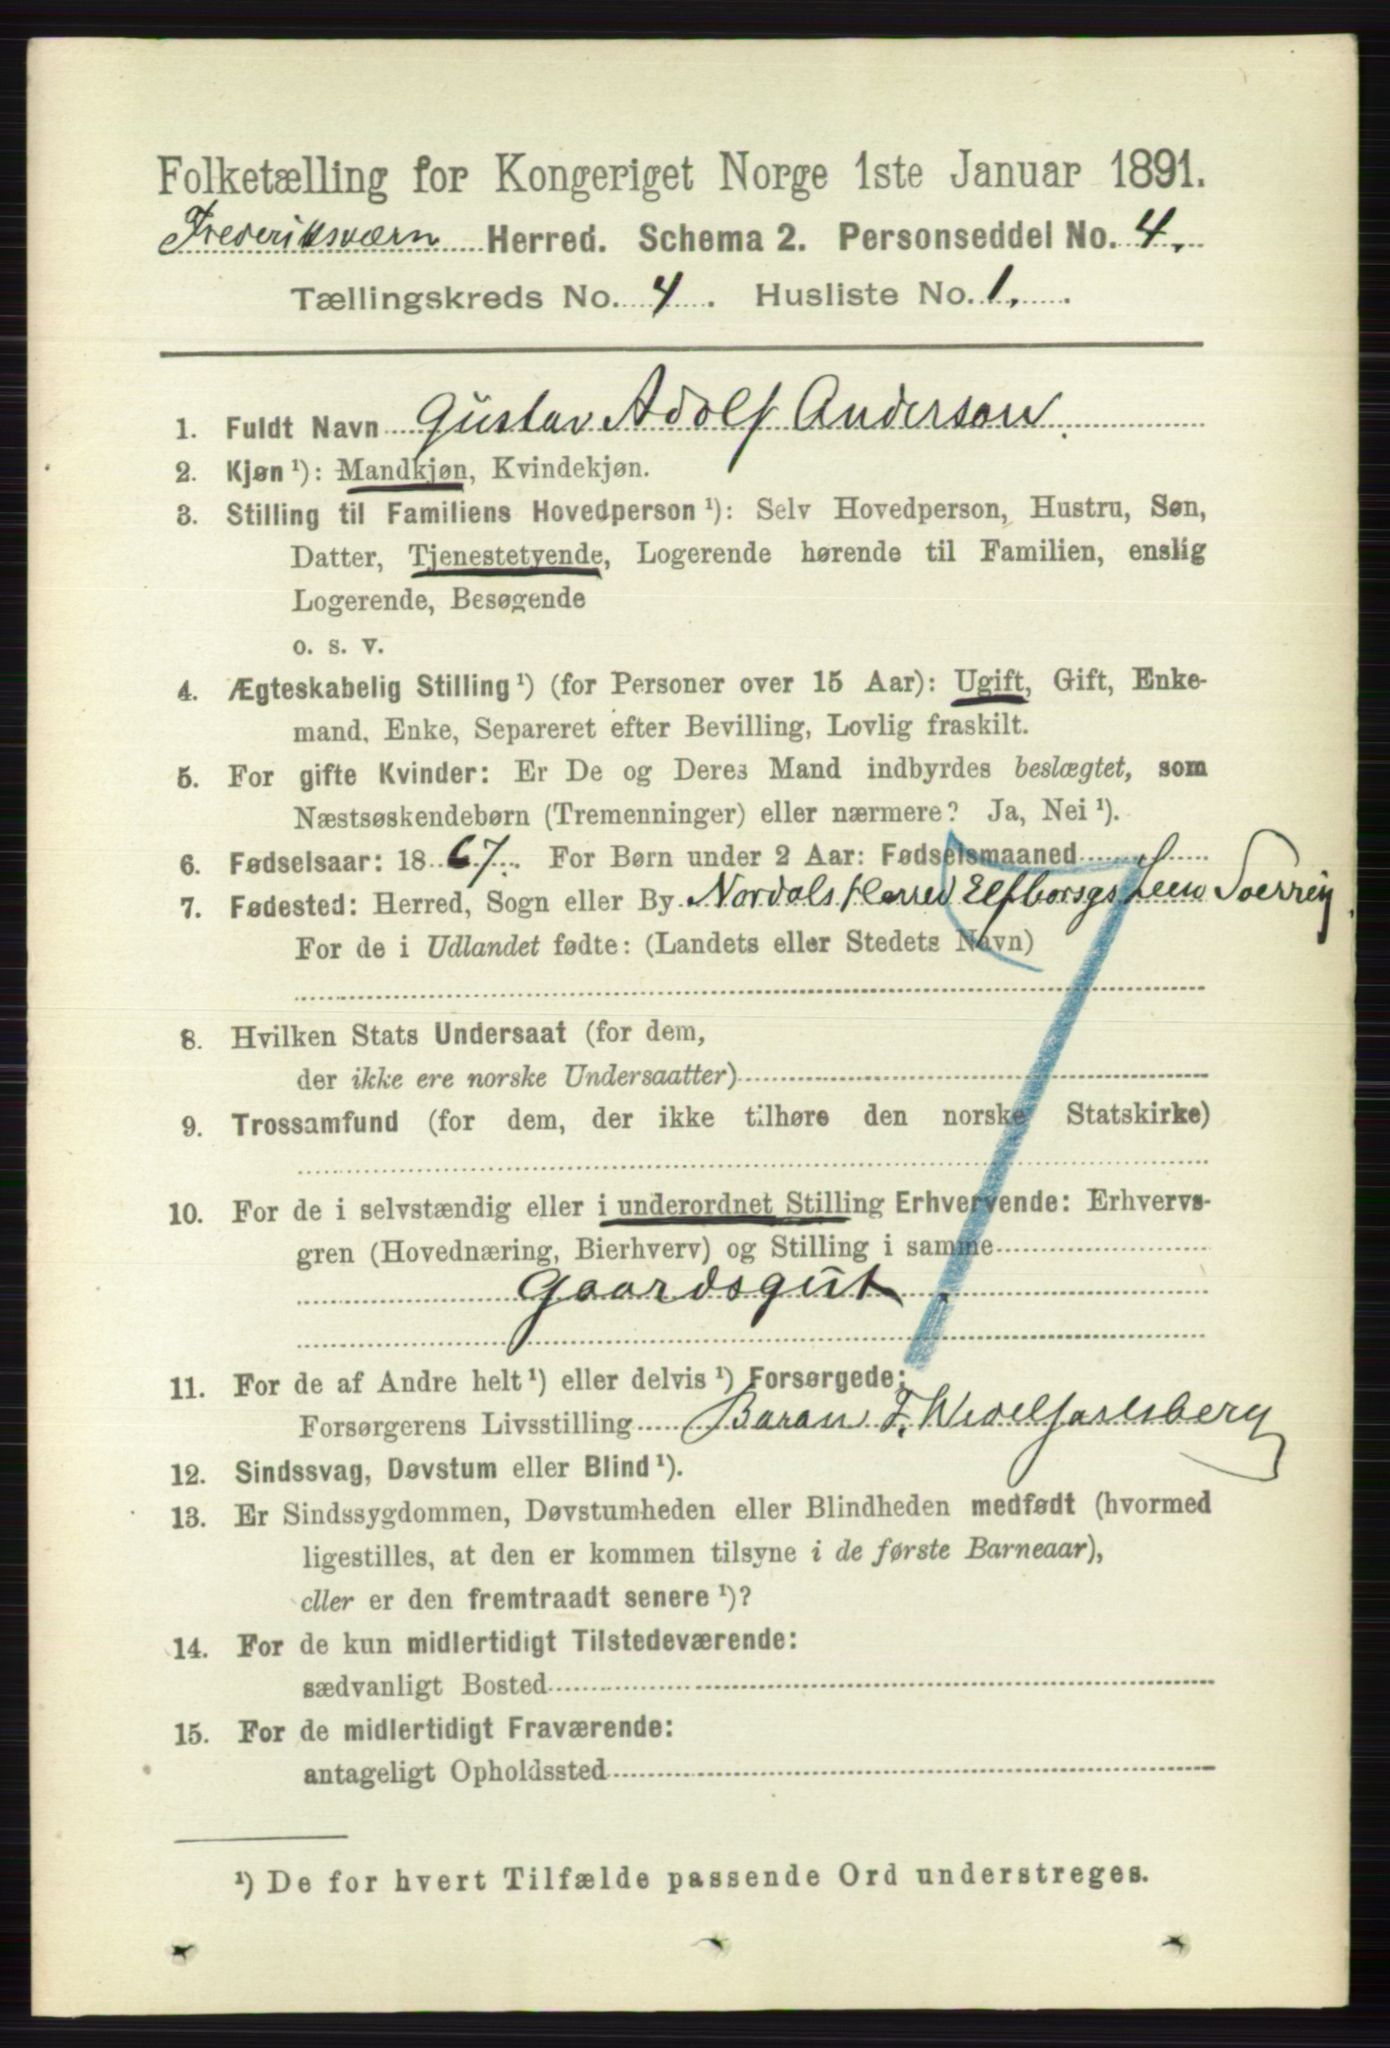 Folketælling for Kongeriget Norge 1ste Januar 1891.
Frederiksværn Herred. Schema 2. Personseddel No. 4.
Tællingskreds No. 4. Husliste No. 1.
1. Fuldt Navn Gustav Adolf Anderson.
2. Kjøn ¹): Mandkjøn, Kvindekjøn.
3. Stilling til Familiens Hovedperson ¹): Selv Hovedperson, Hustru, Søn,
Datter, Tjenestetyende, Logerende hørende til Familien, enslig
Logerende, Besøgende
o. s. v.
4. Ægteskabelig Stilling ¹) (for Personer over 15 Aar): Ugift, Gift, Enke-
mand, Enke, Separeret efter Bevilling, Lovlig fraskilt.
5. For gifte Kvinder: Er De og Deres Mand indbyrdes beslægtet, som
Næstsøskendebørn (Tremenninger) eller nærmere? Ja, Nei ¹).
6. Fødselsaar: 1867. For Børn under 2 Aar: Fødselsmaaned
7. Fødested: Herred, Sogn eller By Nordals Herred Elfborsgs Leen Sverrig
For de i Udlandet fødte: (Landets eller Stedets Navn)
8. Hvilken Stats Undersaat (for dem,
der ikke ere norske Undersaatter)
9. Trossamfund (for dem, der ikke tilhøre den norske Statskirke)
10. For de i selvstændig eller i underordnet Stilling Erhvervende: Erhvervs-
gren (Hovednæring, Bierhverv) og Stilling i samme
Gaardsgut.
11. For de af Andre helt ¹) eller delvis ¹) Forsørgede:
Forsørgerens Livsstilling Baron F. Wedel Jarlsberg
12. Sindssvag, Døvstum eller Blind ¹).
13. Er Sindssygdommen, Døvstumheden eller Blindheden medfødt (hvormed
ligestilles, at den er kommen tilsyne i de første Barneaar),
eller er den fremtraadt senere ¹)?
14. For de kun midlertidigt Tilstedeværende:
sædvanligt Bosted
15. For de midlertidigt Fraværende:
antageligt Opholdssted
¹) De for hvert Tilfælde passende Ord understreges.